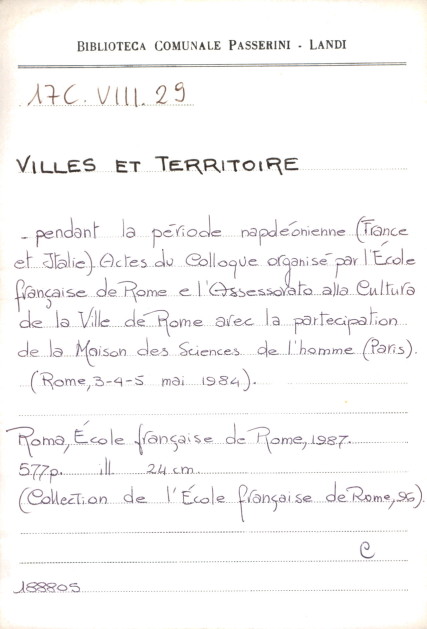 BIBLIOTECA COMUNALE PASSERINI - LANDI
17C. VIII. 29
VILLES ET TERRITOIRE
- pendant la période napoléonienne (France
et Italie). Actes du Colloque organisé par l'École
française de Rome e l'Assessorato alla Cultura
de la Ville de Rome avec la partecipation
de la Maison des Sciences de l'homme (Paris).
(Rome, 3-4-5 mai 1984).
Roma, École française de Rome, 1987.
577p. ill. 24 cm.
(Collection de l'École française de Rome, 96).
C
188805